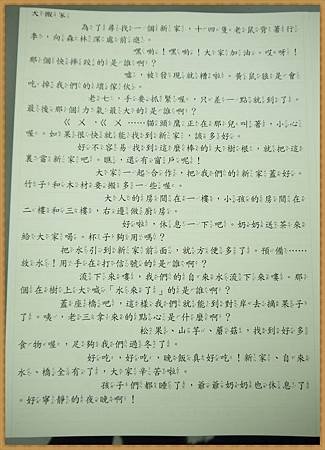 大搬家
為了尋找一個新家，十四隻老鼠背著行
李，向森林深處前進。
嘿喲！嘿喲！大家加油。哎呀！
那個快摔跤的是誰啊？
噓，被發現就糟啦。黃鼠狼是會
吃掉我們的壞傢伙。
老七，手要抓緊喔，只差一點就到了。
最後那個力氣最大的是誰啊？
ㄍㄨ，ㄍㄨ……貓頭鷹正在那兒叫著，小心
喔。如果很快就能找到新家，該多好。
好不容易找到這麼棒的大樹根，就把這
裏當新家吧。瞧，還有窗戶呢！
大家一起合作，把我們的新家蓋好。
竹子和木材要搬多一些喔。
大人的房間在一樓，小孩的房間在
二樓和三樓，右邊做廚房。
好啦，休息一下吧。奶奶送茶來
給大家喝。杯子夠用嗎？
把水引到新家前面，就方便多了。預備……
放水！用手在打信號的是誰啊？
流下來嘍，我們的自來水流下來嘍。那
個在樹上大喊「水來了」的是誰啊？
蓋座橋吧，這樣我們就能到對岸去摘果子
了。咦，老三拿來的點心是什麼啊？
松果、山芋、蘑菇，找到好多
食物喔，足夠我們過冬了。
好吃，好吃，晚飯真好吃！新家、自來
水、橋全有了，大家辛苦啦。
孩子們都睡了，爺爺奶奶也休息了
。好寧靜的夜晚啊！